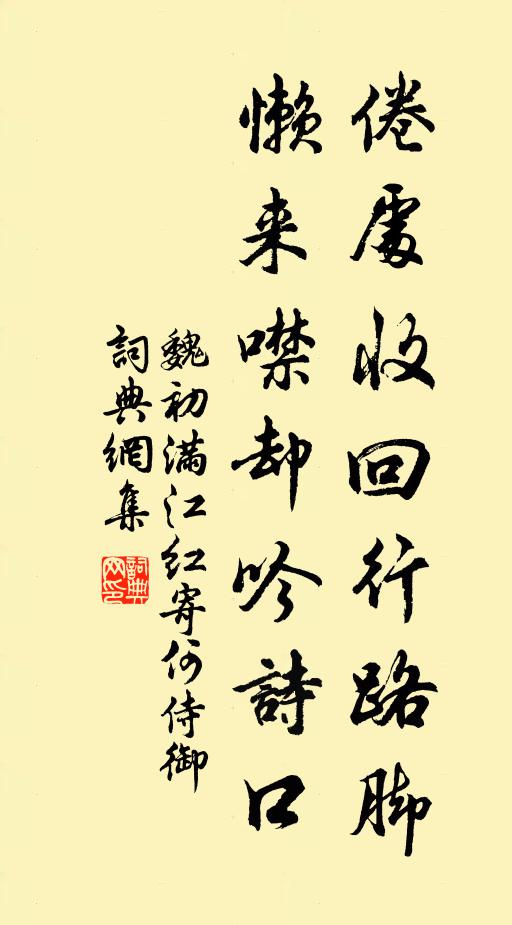 倦處收回行路脚
懶来噤却吟詩口
魏初满江红寄何侍御
詞典網集
詞典网印